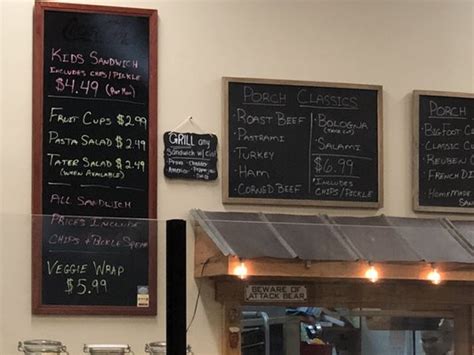 Kids Sandwich
Includes chips/pickle
$4.49
Fruit Cups $2.99
Pasta Salad $2.49
Tater Salad $2.49
(when available)
All Sandwich
Prices Include
Chips & Pickle Spear
Veggie Wrap
$5.99
GRILL any
Sandwich w/
Porch Classics
Roast Beef
Pastrami
Turkey
Ham
Corned Beef
Bologna
Salami
$6.99
Includes
Chips/Pickle
Porch
Bigfoot
Classic
Reuben
French
Homemade
BEWARE OF
ATTACK BEAR